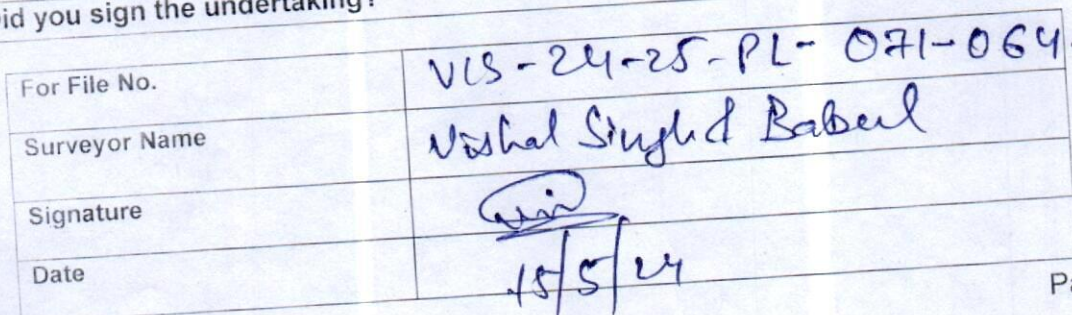 id you sign the undertaking?
For File No. VIS-24-25-PL-071-064
Surveyor Name Vishal Singh & Babul
Signature
Date 15/5/24
Pa